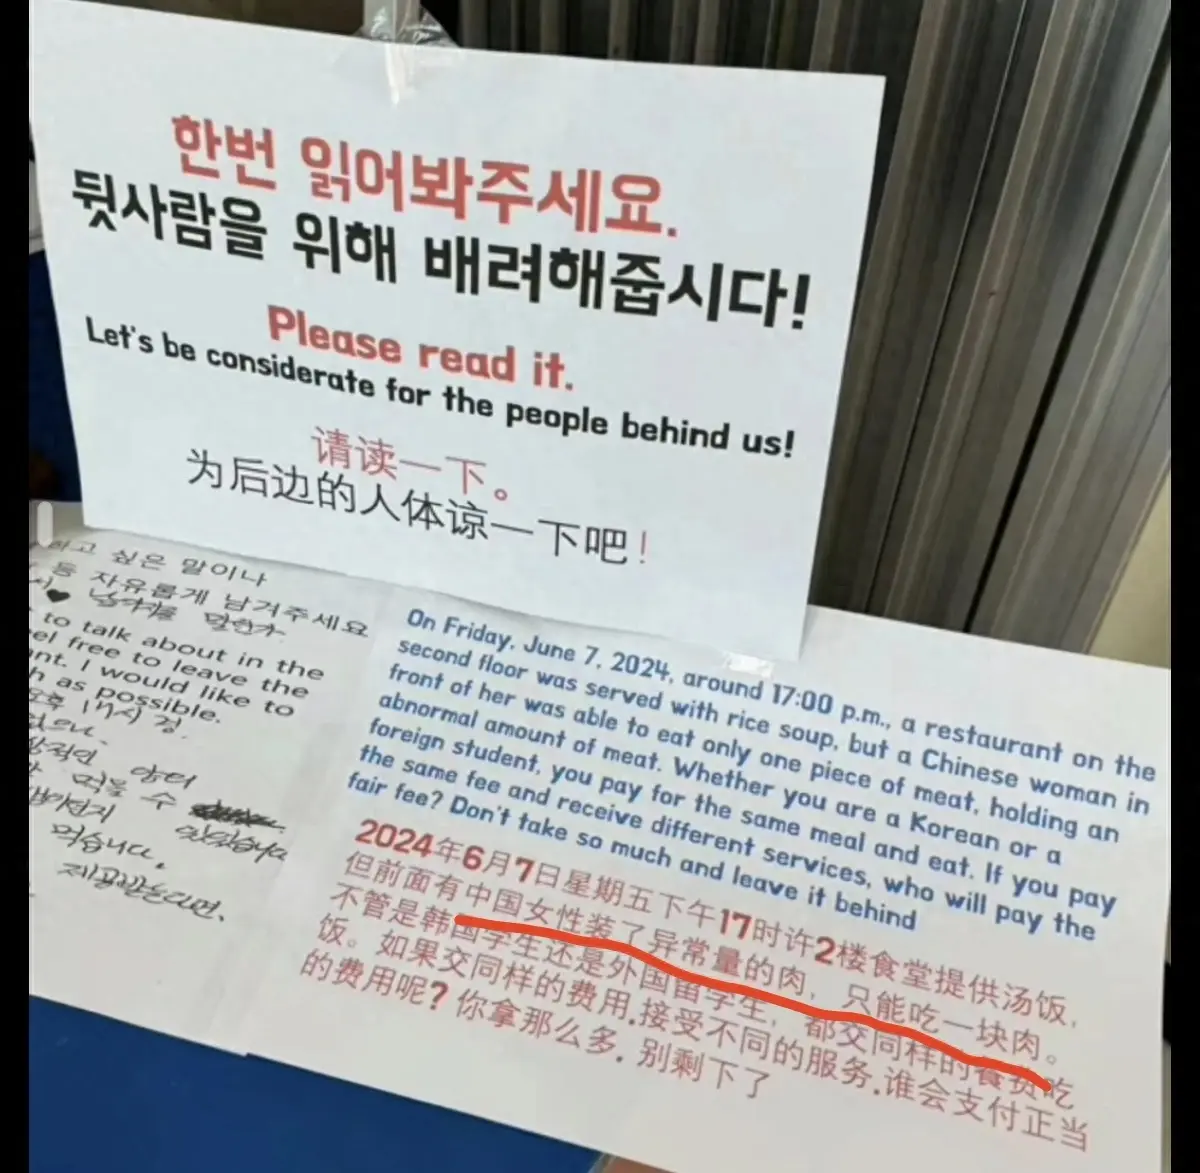 한번 읽어봐주세요.
뒷사람을 위해 배려해줍시다!
Please read it.
Let's be considerate for the people behind us!
请读一下。
为后边的人体谅一下吧！
하고 싶은 말이나
등 자유롭게 남겨주세요
to talk about in the
el free to leave the
nt. I would like to
h as possible.
17시 경.
먹을 수
먹습니다.
제공받는다면,
On Friday, June 7, 2024, around 17:00 p.m., a restaurant on the
second floor was served with rice soup, but a Chinese woman in
front of her was able to eat only one piece of meat, holding an
abnormal amount of meat. Whether you are a Korean or a
foreign student, you pay for the same meal and eat. If you pay
the same fee and receive different services, who will pay the
fair fee? Don't take so much and leave it behind
2024年6月7日星期五下午17时许2楼食堂提供汤饭,
但前面有中国女性装了异常量的肉，只能吃一块肉。
不管是韩国学生还是外国留学生，都交同样的餐费吃
饭。如果交同样的费用.接受不同的服务.谁会支付正当
的费用呢? 你拿那么多. 别剩下了